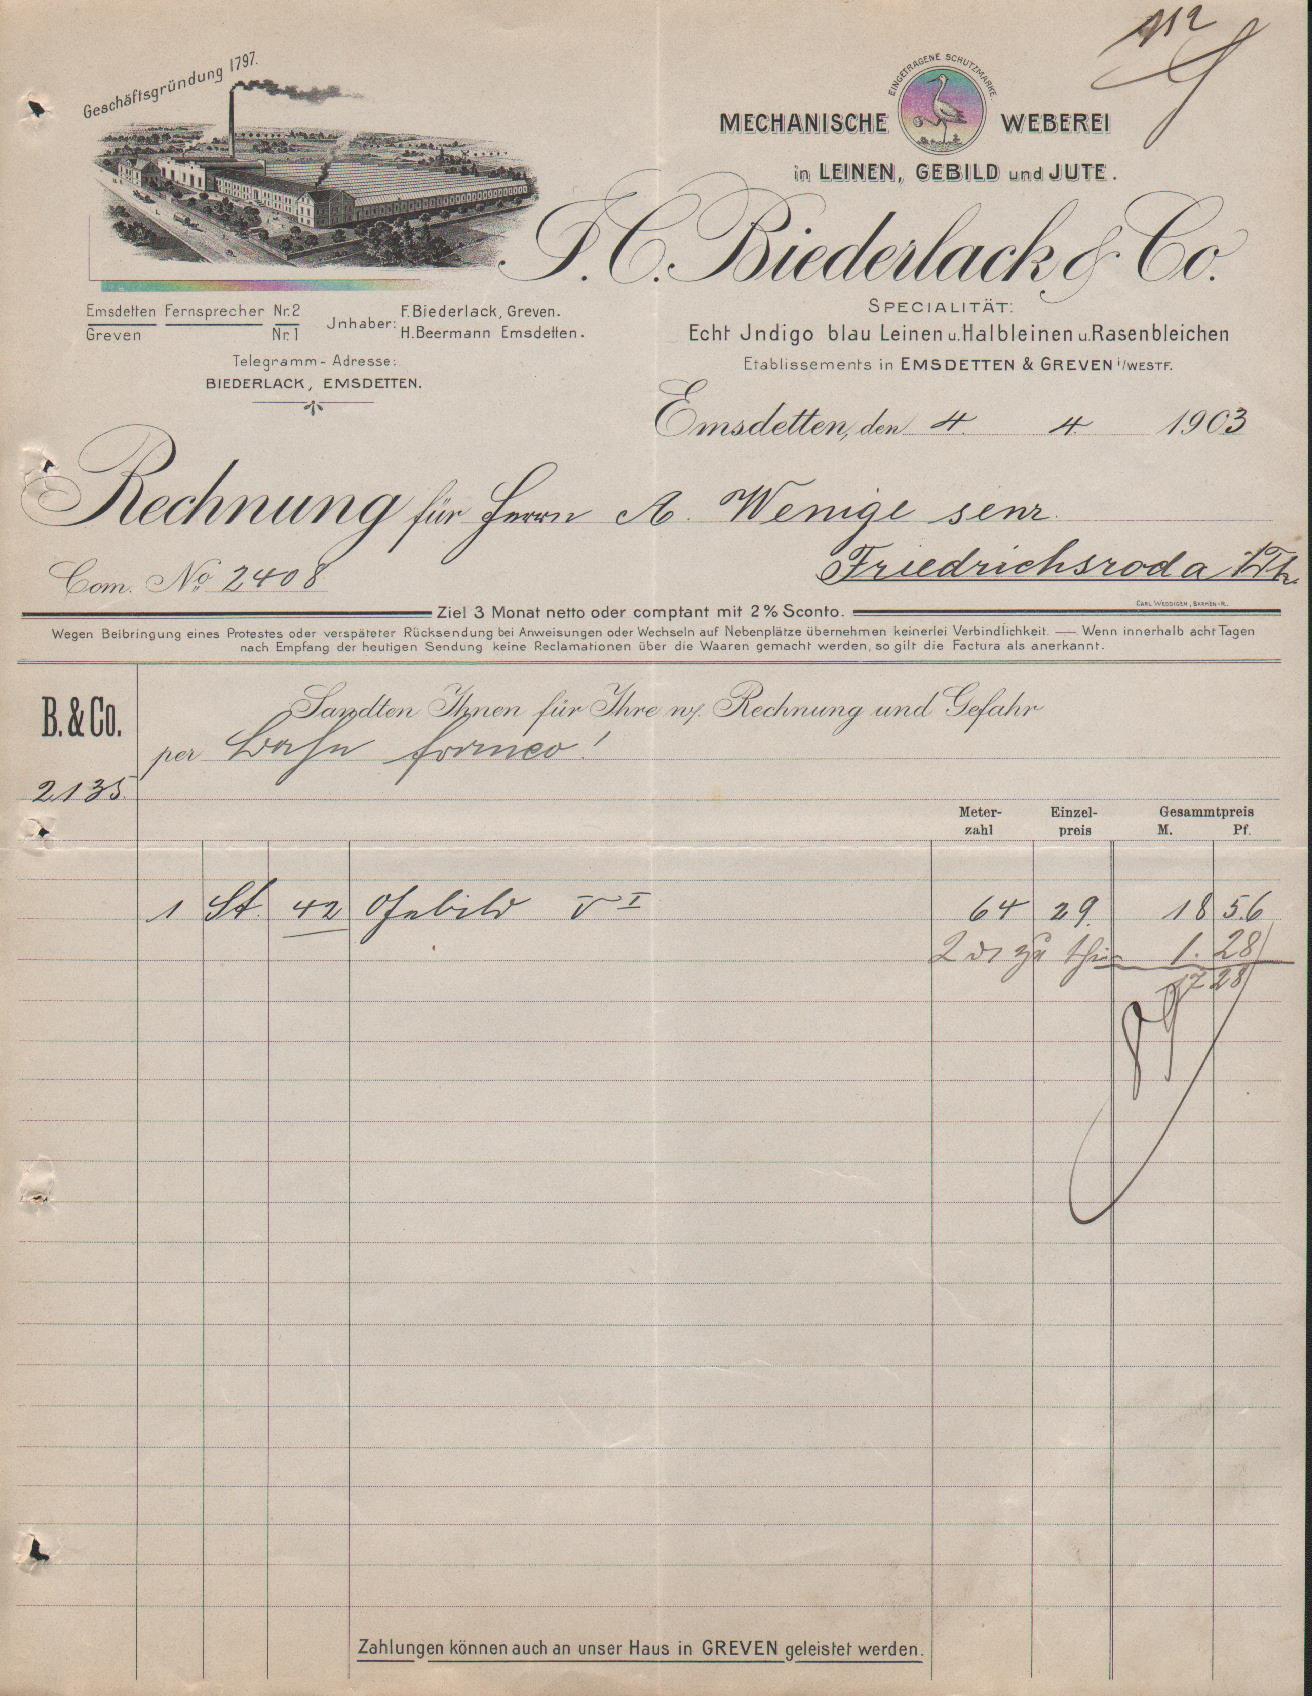 Geschäftsgründung 1797.
EINGETRAGENE SCHUTZMARKE
MECHANISCHE WEBEREI
in LEINEN, GEBILD und JUTE.
F. C. Biederlack & Co.
Emsdetten Fernsprecher Nr. 2
Greven Nr. 1
Jnhaber: F. Biederlack, Greven.
H. Beermann Emsdetten.
Telegramm-Adresse:
BIEDERLACK, EMSDETTEN.
SPECIALITÄT:
Echt Jndigo blau Leinen u. Halbleinen u. Rasenbleichen
Etablissements in EMSDETTEN & GREVEN i/WESTF.
Emsdetten, den 4. 4. 1903
Rechnung für Herrn A. Wenige senr.
Friedrichsroda i/Th.
Com. No. 2408
Ziel 3 Monat netto oder comptant mit 2% Sconto.
CARL WEDDIGEN, BARMEN-R.
Wegen Beibringung eines Protestes oder verspäteter Rücksendung bei Anweisungen oder Wechseln auf Nebenplätze übernehmen keinerlei Verbindlichkeit. — Wenn innerhalb acht Tagen
nach Empfang der heutigen Sendung keine Reclamationen über die Waaren gemacht werden, so gilt die Factura als anerkannt.
B. & Co.
Sandten Ihnen für Ihre w/. Rechnung und Gefahr
per Bahn franco!
2135.
Meter-zahl Einzel-preis Gesammtpreis M. Pf.
1 St. 42 Gebild I 64 29. 18 56
1. 28
17 28
Zahlungen können auch an unser Haus in GREVEN geleistet werden.